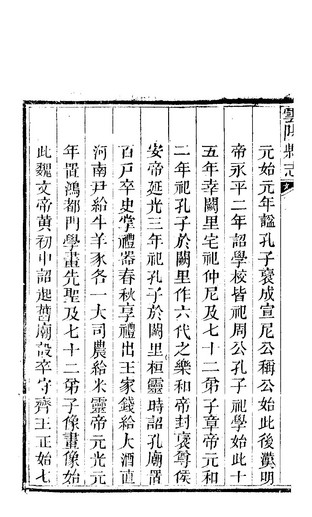 雲縣志
元始元年諡孔子褒成宣尼公稱公始此後漢明
帝永平二年詔學校皆祀周公孔子祀學始此十
五年幸闕里宅祀仲尼及七十二弟子章帝元和
二年祀孔子於闕里作六代之樂和帝封褒尊侯
安帝延光三年祀孔子於闕里桓靈時詔孔廟置
百戸卒史掌禮器春秋享禮出王家錢給大酒直
河南尹給牛羊豕各一大司農給米靈帝元光元
年置鴻都門學畫先聖及七十二弟子像畫像始
此魏文帝黃初中詔起舊廟設卒守齊王正始七